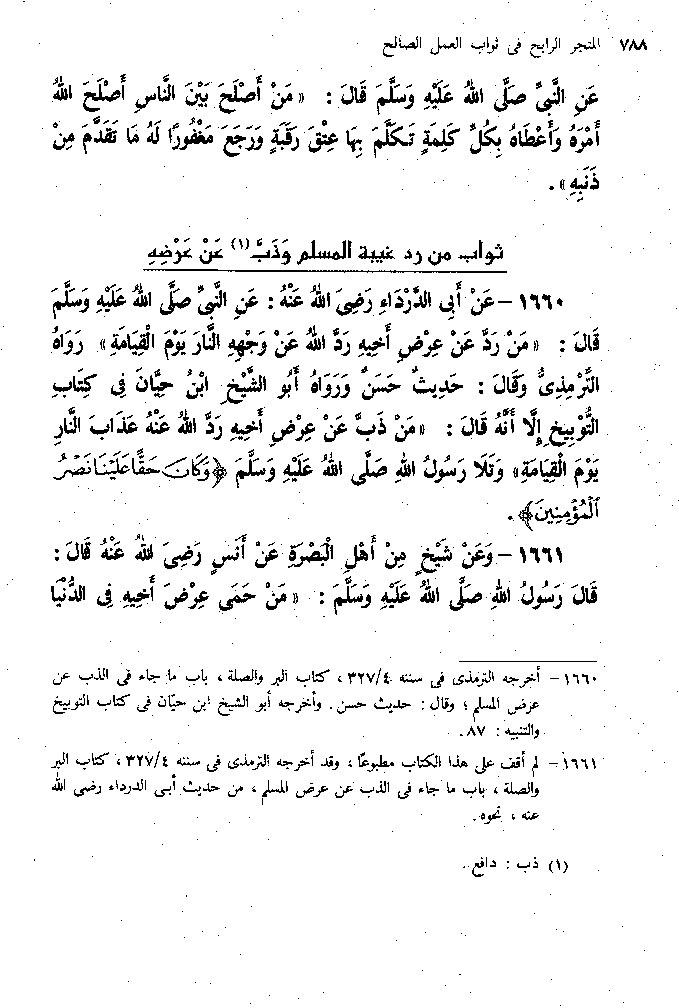 ٧٨٨ المتجر الرابح فى ثواب العمل الصالح
عَنِ النَّبِىِّ صَلَّى اللهُ عَلَيْهِ وَسَلَّمَ قَالَ : « مَنْ أَصْلَحَ بَيْنَ النَّاسِ أَصْلَحَ اللهُ
أَمْرَهُ وَأَعْطَاهُ بِكُلِّ كَلِمَةٍ تَكَلَّمَ بِهَا عِتْقَ رَقَبَةٍ وَرَجَعَ مَغْفُورًا لَهُ مَا تَقَدَّمَ مِنْ
ذَنَبِهِ » .
ثواب من رد غيبة المسلم وَذَبَّ (١) عَنْ عَرْضِهِ
١٦٦٠ – عَنْ أَبِى الدَّرْدَاءِ رَضِىَ اللهُ عَنْهُ : عَنِ النَّبِىِّ صَلَّى اللهُ عَلَيْهِ وَسَلَّمَ
قَالَ : « مَنْ رَدَّ عَنْ عِرْضِ أَخِيهِ رَدَّ اللهُ عَنْ وَجْهِهِ النَّارَ يَوْمَ الْقِيَامَةِ » رَوَاهُ
التِّرْمِذِىُّ وَقَالَ : حَدِيثٌ حَسَنٌ وَرَوَاهُ أَبُو الشَّيْخِ ابْنُ حِيَّانَ فِى كِتَابِ
التَّوْبِيخِ إِلَّا أَنَّهُ قَالَ : « مَنْ ذَبَّ عَنْ عِرْضِ أَخِيهِ رَدَّ اللهُ عَنْهُ عَذَابَ النَّارِ
يَوْمَ الْقِيَامَةِ » وَتَلَا رَسُولُ اللهِ صَلَّى اللهُ عَلَيْهِ وَسَلَّمَ ﴿ وَكَانَ حَقًّا عَلَيْنَا نَصْرُ
الْمُؤْمِنِينَ ﴾ .
١٦٦١ – وَعَنْ شَيْخٍ مِنْ أَهْلِ الْبَصْرَةِ عَنْ أَنَسٍ رَضِىَ اللهُ عَنْهُ قَالَ :
قَالَ رَسُولُ اللهِ صَلَّى اللهُ عَلَيْهِ وَسَلَّمَ : « مَنْ حَمَى عِرْضَ أَخِيهِ فِى الدُّنْيَا
١٦٦٠ – أخرجه الترمذى فى سننه ٣٢٧/٤ ، كتاب البر والصلة ، باب ما جاء فى الذب عن
عرض المسلم ؛ وقال : حديث حسن . وأخرجه أبو الشيخ ابن حيّان فى كتاب التوبيخ
والتنبيه : ٨٧ .
١٦٦١ – لم أقف على هذا الكتاب مطبوعًا ، وقد أخرجه الترمذى فى سننه ٣٢٧/٤ ، كتاب البر
والصلة ، باب ما جاء فى الذب عن عرض المسلم ، من حديث أبى الدرداء رضى الله
عنه ، نحوه .
(١) ذب : دافع .